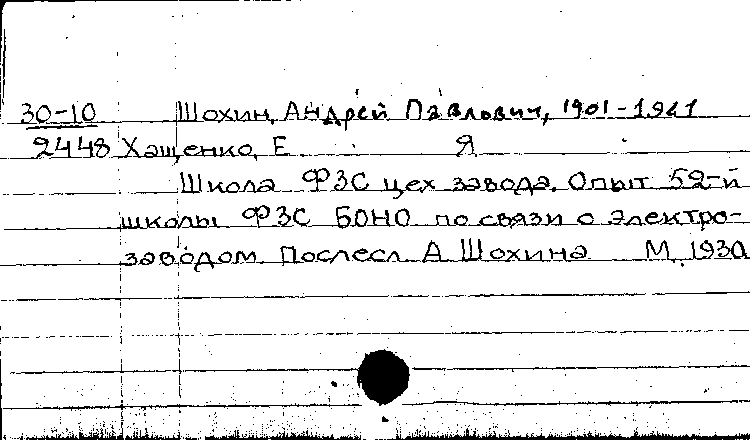 30-10 Шохин, Андрей Павлович, 1901-1941
2448 Хащенко, Е Я
Школа ФЗС цех завода. Опыт 52-й
школы ФЗС БОНО по связи с Электро-
заводом. Послесл. А Шохина М, 1930